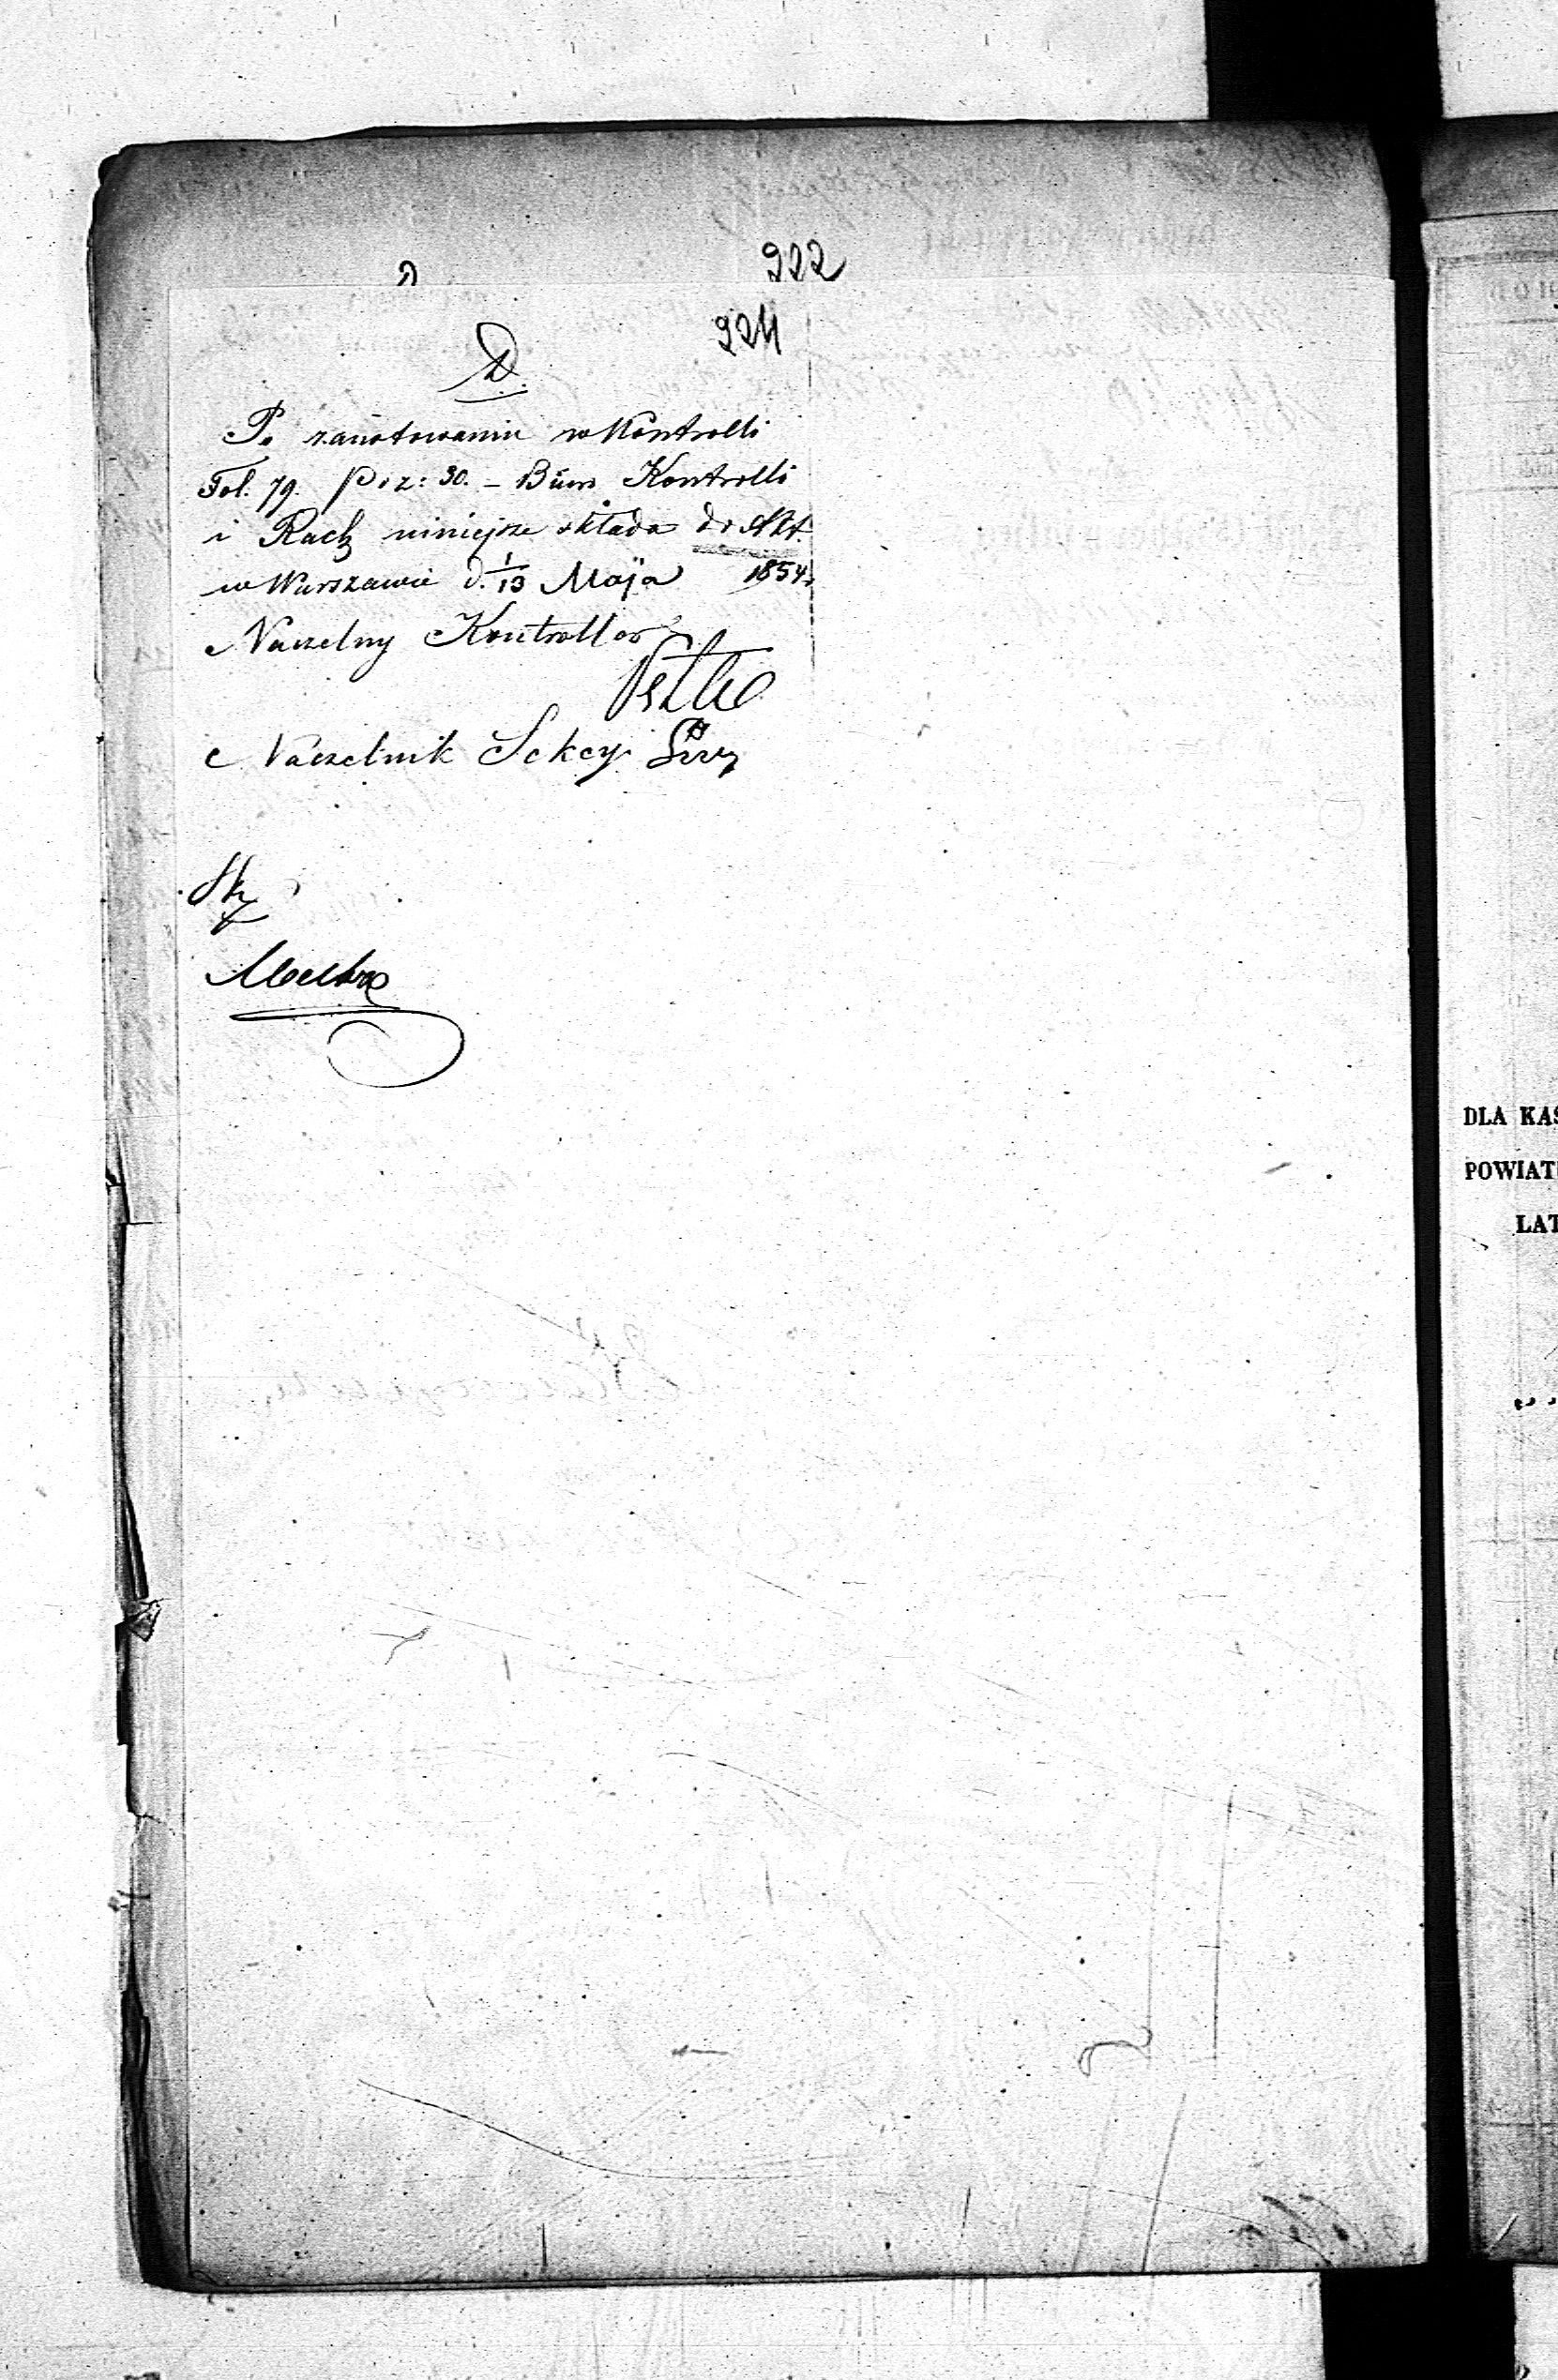 922
924
D.
Po zanotowaniu w Kontrolli
Fol. 79. Poz: 30. – Biuro Kontrolli
i Rach niniejsze składa do Akt.
w Warszawie d. 1/13 Maja 1854
Naczelny Kontrollor
Naczelnik Sekcyi
DLA KAS
POWIAT
LAT